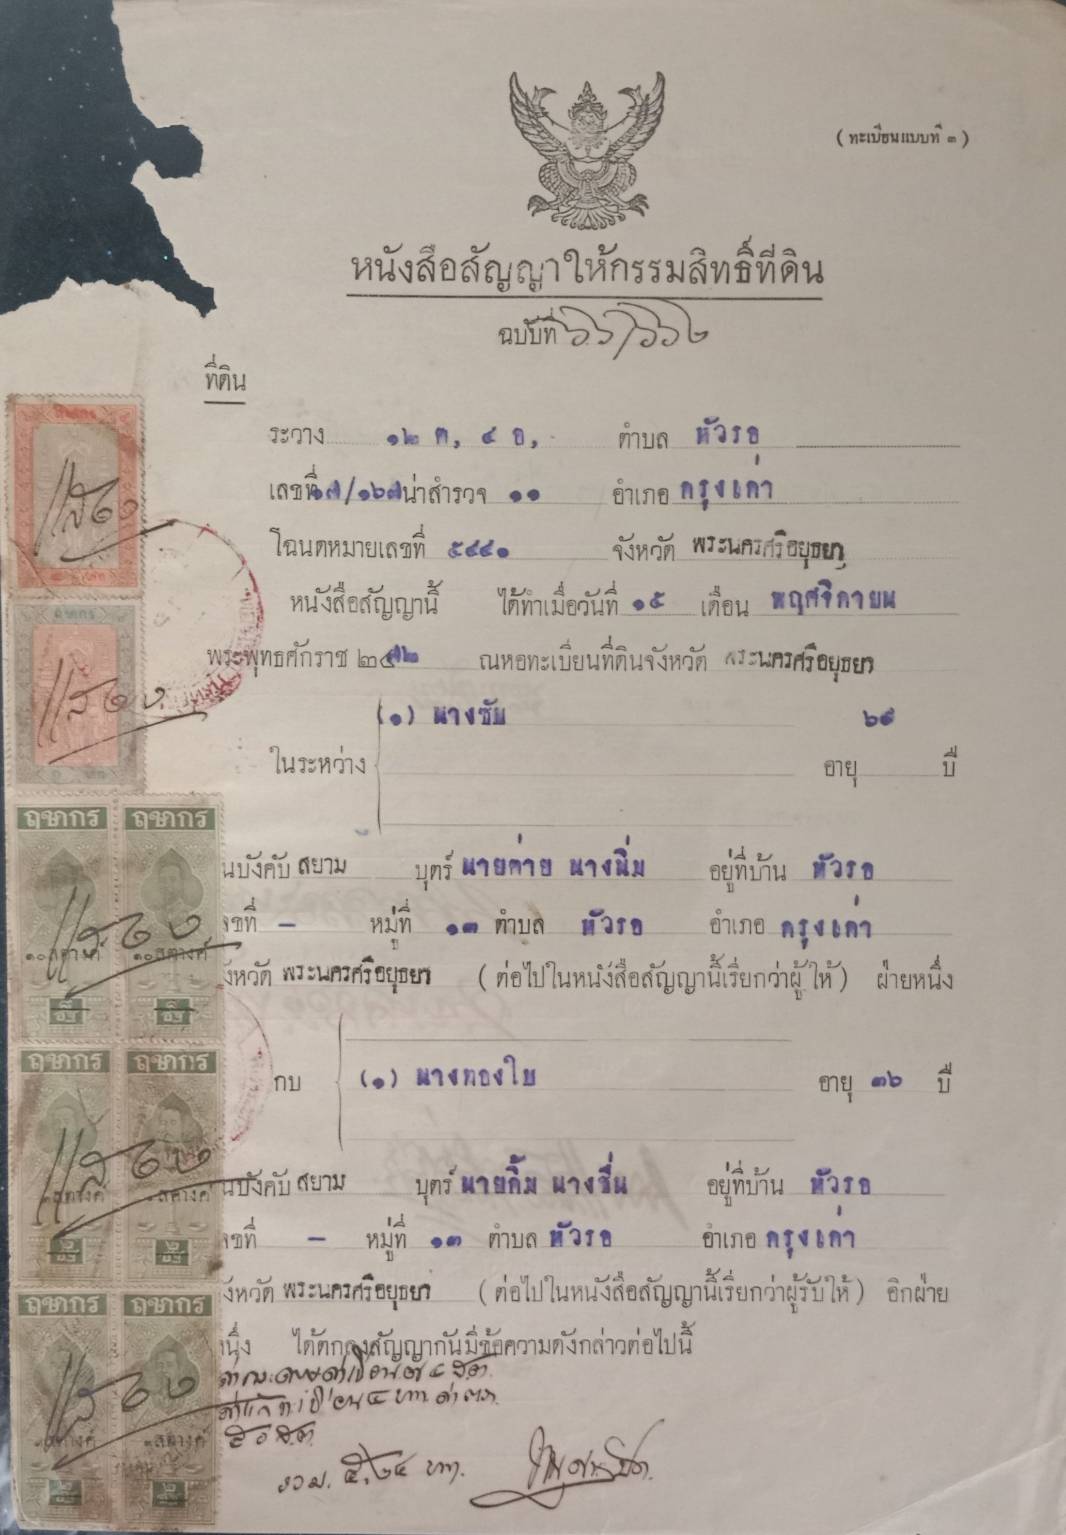 ( ทะเบียนแบบที่ ๓ )
หนังสือสัญญาให้กรรมสิทธิ์ที่ดิน
ฉบับที่ ๖๖/๖๖๒
ที่ดิน
ระวาง ๑๒ ต, ๔ อ, ตำบล หัวรอ
เลขที่ ๑๗/๑๖๗ น่าสำรวจ ๑๑ อำเภอ กรุงเก่า
โฉนดหมายเลขที่ ๕๔๔๑ จังหวัด พระนครศรีอยุธยา
หนังสือสัญญานี้ ได้ทำเมื่อวันที่ ๑๕ เดือน พฤศจิกายน
พระพุทธศักราช ๒๔๗๒ ณหอทะเบียนที่ดินจังหวัด พระนครศรีอยุธยา
(๑) นางชัน ๖๙
ในระหว่าง อายุ ปี
นบังคับ สยาม บุตร์ นายค่าย นางนิ่ม อยู่ที่บ้าน หัวรอ
ลขที่ – หมู่ที่ ๑๓ ตำบล หัวรอ อำเภอ กรุงเก่า
ังหวัด พระนครศรีอยุธยา ( ต่อไปในหนังสือสัญญานี้เรียกว่าผู้ให้ ) ฝ่ายหนึ่ง
กับ (๑) นางทองใบ อายุ ๓๖ ปี
นบังคับ สยาม บุตร์ นายกิ้ม นางชื่น อยู่ที่บ้าน หัวรอ
ลขที่ – หมู่ที่ ๑๓ ตำบล หัวรอ อำเภอ กรุงเก่า
ังหวัด พระนครศรีอยุธยา ( ต่อไปในหนังสือสัญญานี้เรียกว่าผู้รับให้ ) อีกฝ่าย
นึ่ง ได้ตกลงสัญญากันมีข้อความดังกล่าวต่อไปนี้
รวม ๕,๒๔ บาท
อากร
ฤชากร ฤชากร
๑๐ สตางค์ ๑๐ สตางค์
ฤชากร ฤชากร
สตางค์ สตางค์
ฤชากร ฤชากร
สตางค์ สตางค์